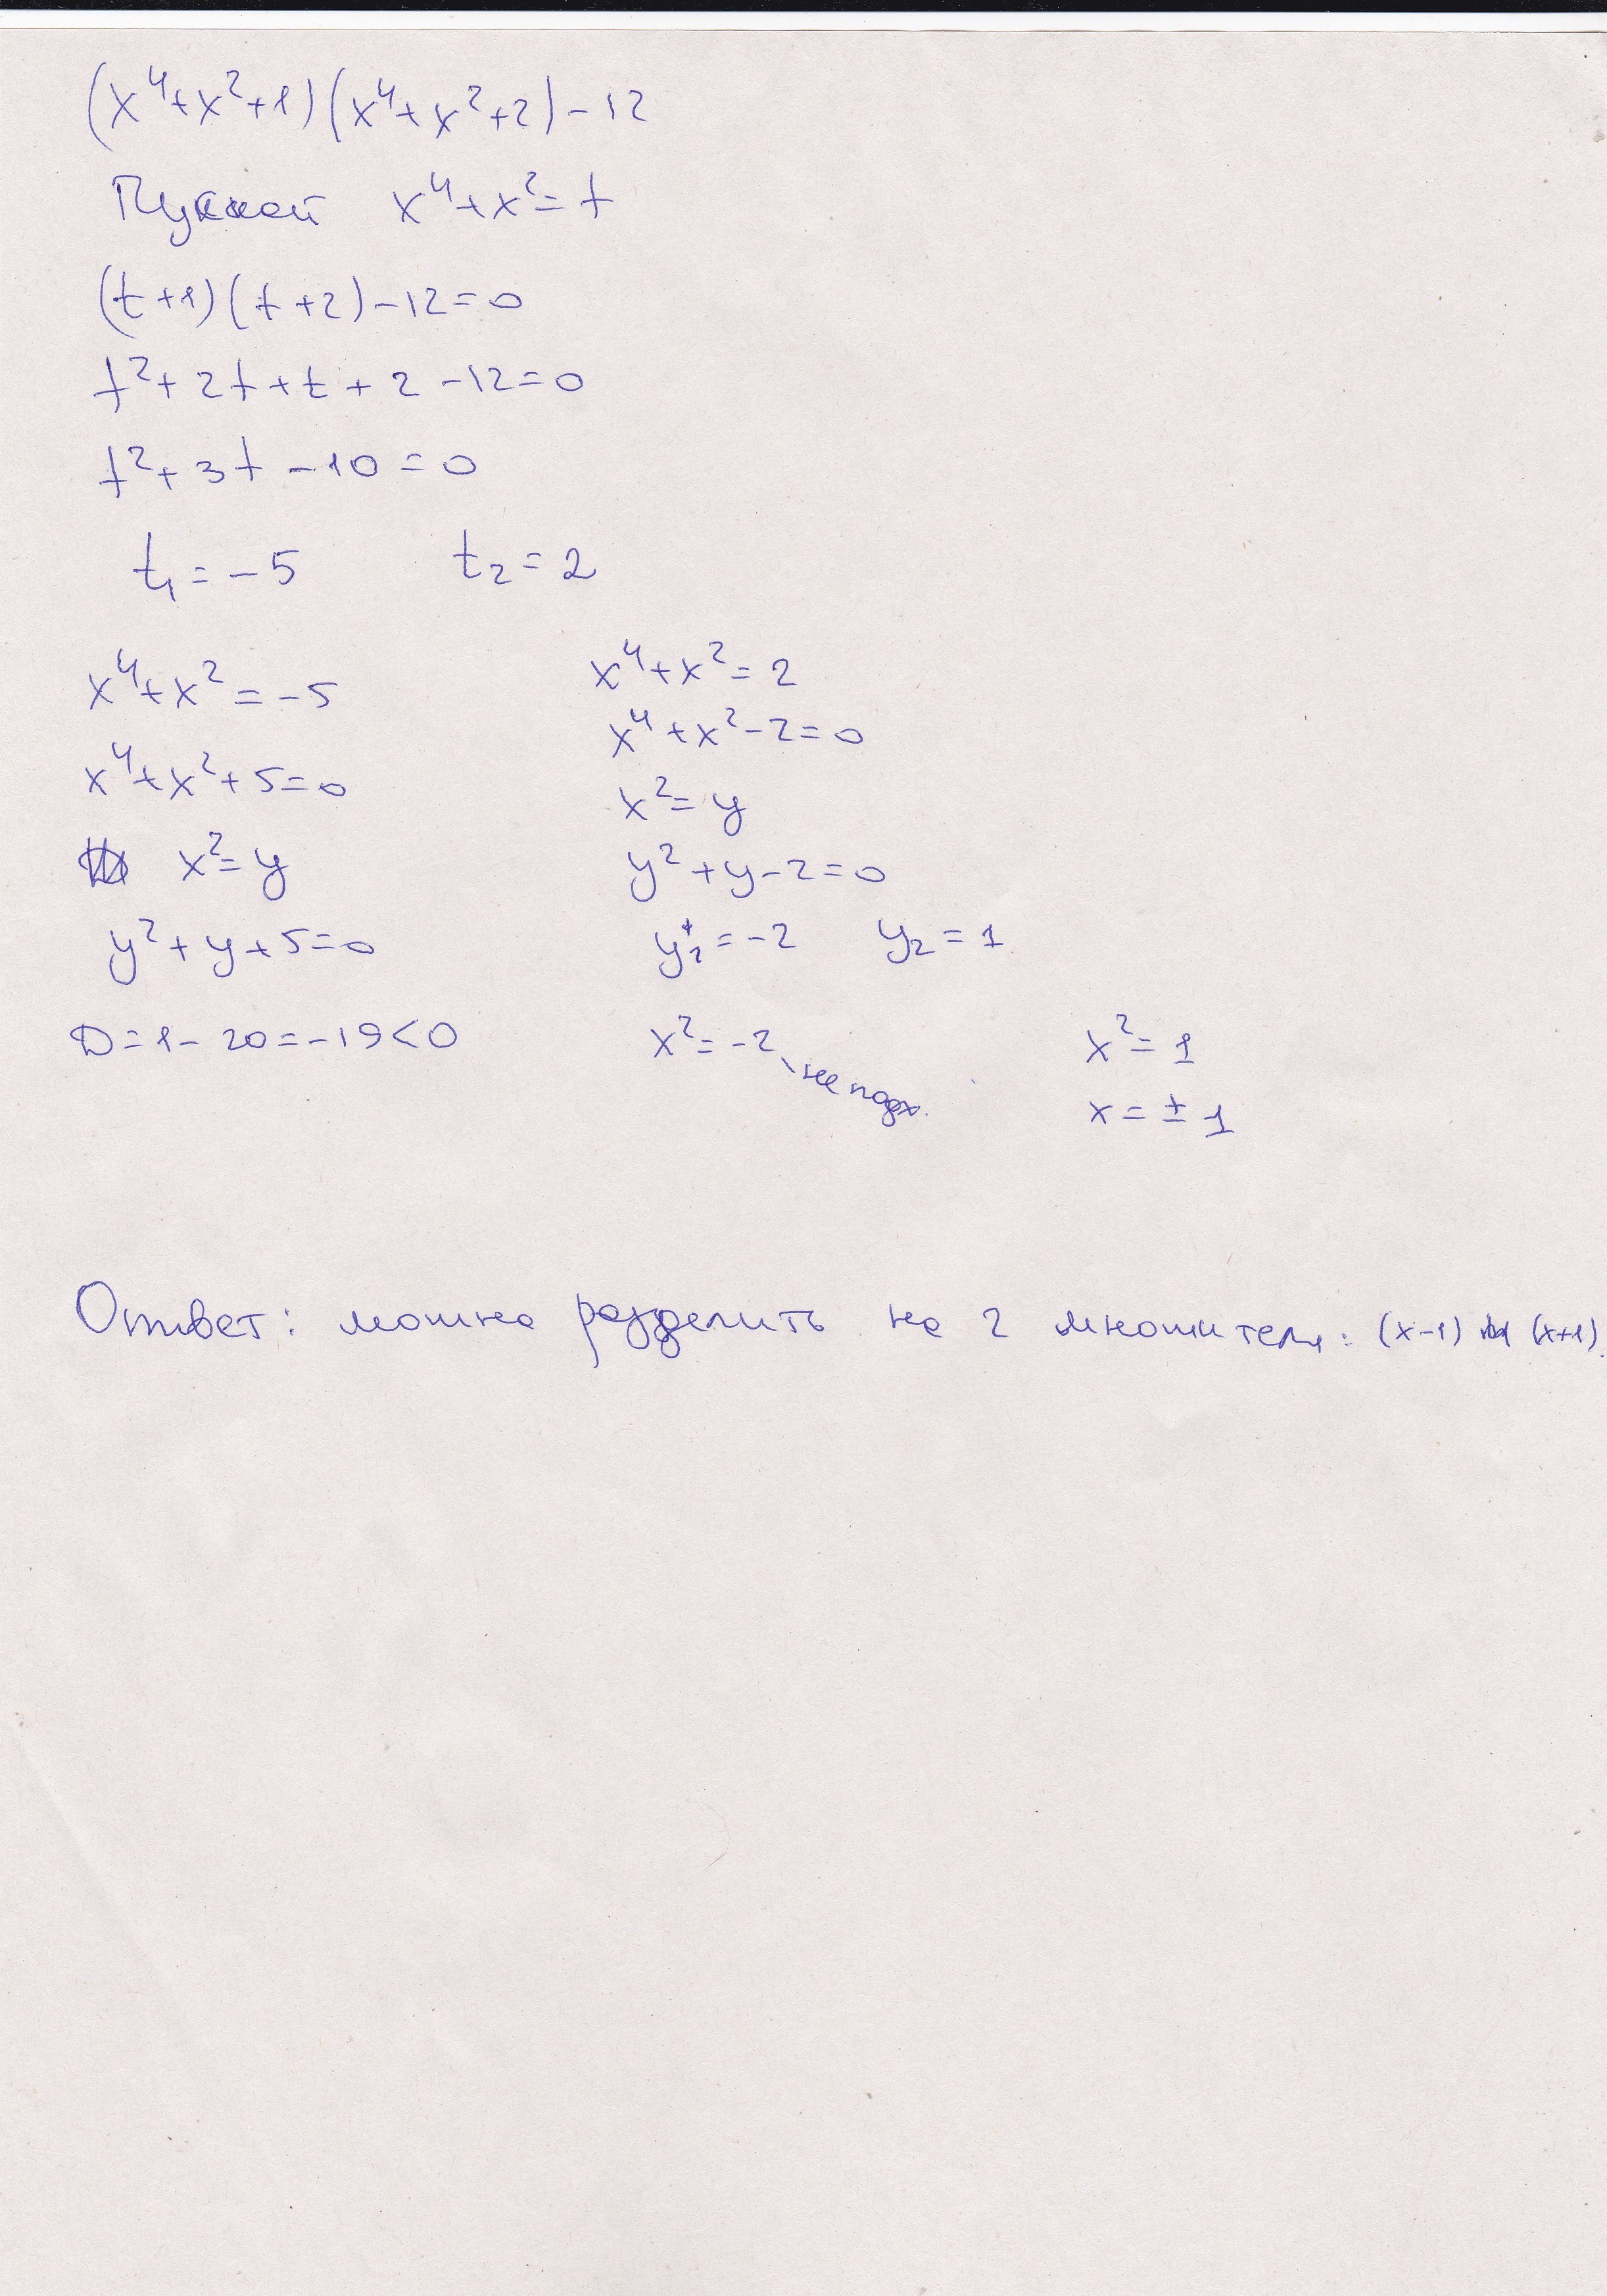 (x⁴+x²+1)(x⁴+x²+2)-12
Пускай x⁴+x²=t
(t+1)(t+2)-12=0
t²+2t+t+2-12=0
t²+3t-10=0
t₁=-5 t₂=2
x⁴+x²=-5
x⁴+x²+5=0
x²=y
y²+y+5=0
D=1-20=-19<0
x⁴+x²=2
x⁴+x²-2=0
x²=y
y²+y-2=0
y₁=-2 y₂=1
x²=-2 не подх.
x²=1
x=±1
Ответ: можно разделить на 2 множителя: (x-1) и (x+1).